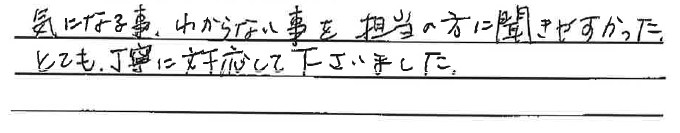 気になる事、わからない事を担当の方に聞きやすかった。
とても、丁寧に対応して下さいました。